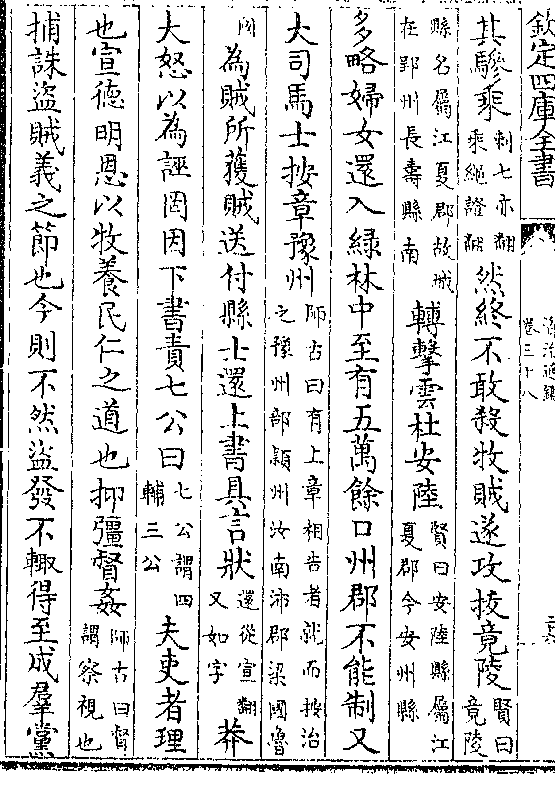 欽定四庫全書
資治通鑑
卷三十八
其驂乗刺七亦翻
乘繩證翻然終不敢殺牧賊遂攻拔竟陵賢曰
竟陵
縣名屬江夏郡故城
在郢州長壽縣南轉擊雲杜安陸賢曰安陸縣屬江
夏郡今安州縣
多略婦女還入緑林中至有五萬餘口州郡不能制又
大司馬士按章豫州師古曰有上章相告者就而按治
之豫州部潁川汝南沛郡梁國魯
國為賊所獲賊送付縣士還上書具言狀還從宣翻
又如字莽
大怒以為誣罔因下書責七公曰七公謂四
輔三公夫吏者理
也宣德明恩以牧養民仁之道也抑彊督姦師古曰督
謂察視也
捕誅盜賊義之節也今則不然盜發不輙得至成羣黨